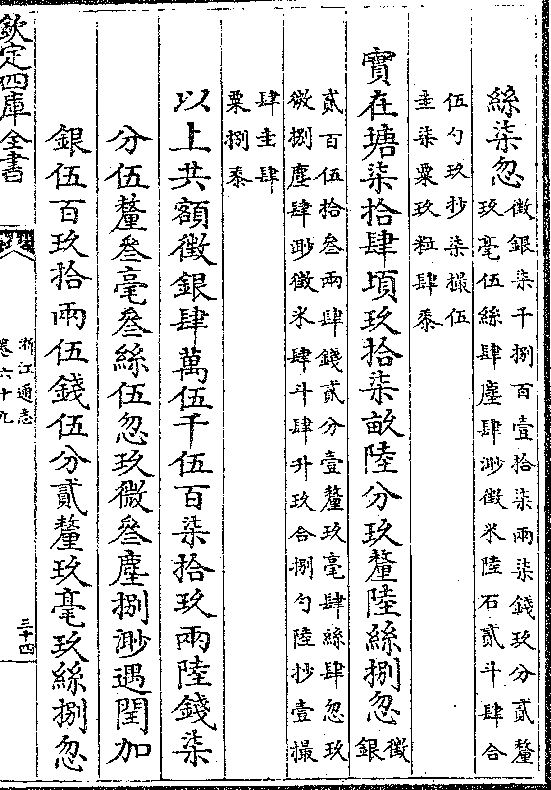 絲柒忽徵銀柒千捌百壹拾柒兩柒錢玖分貳釐
玖毫伍絲肆塵肆渺徵米陸石貳斗肆合
伍勺玖抄柒撮伍
圭柒粟玖粒肆黍
實在塘柒拾肆頃玖拾柒畝陸分玖釐陸絲捌忽徵
銀
貳百伍拾叁兩肆錢貳分壹釐玖毫肆絲肆忽玖
微捌塵肆渺徵米肆斗肆升玖合捌勺陸抄壹撮
肆圭肆
粟捌黍
以上共額徵銀肆萬伍千伍百柒拾玖兩陸錢柒
分伍釐叁毫叁絲伍忽玖微叁塵捌渺遇閏加
銀伍百玖拾兩伍錢伍分貳釐玖毫玖絲捌忽
欽定四庫全書
浙江通志
卷六十九
三十四